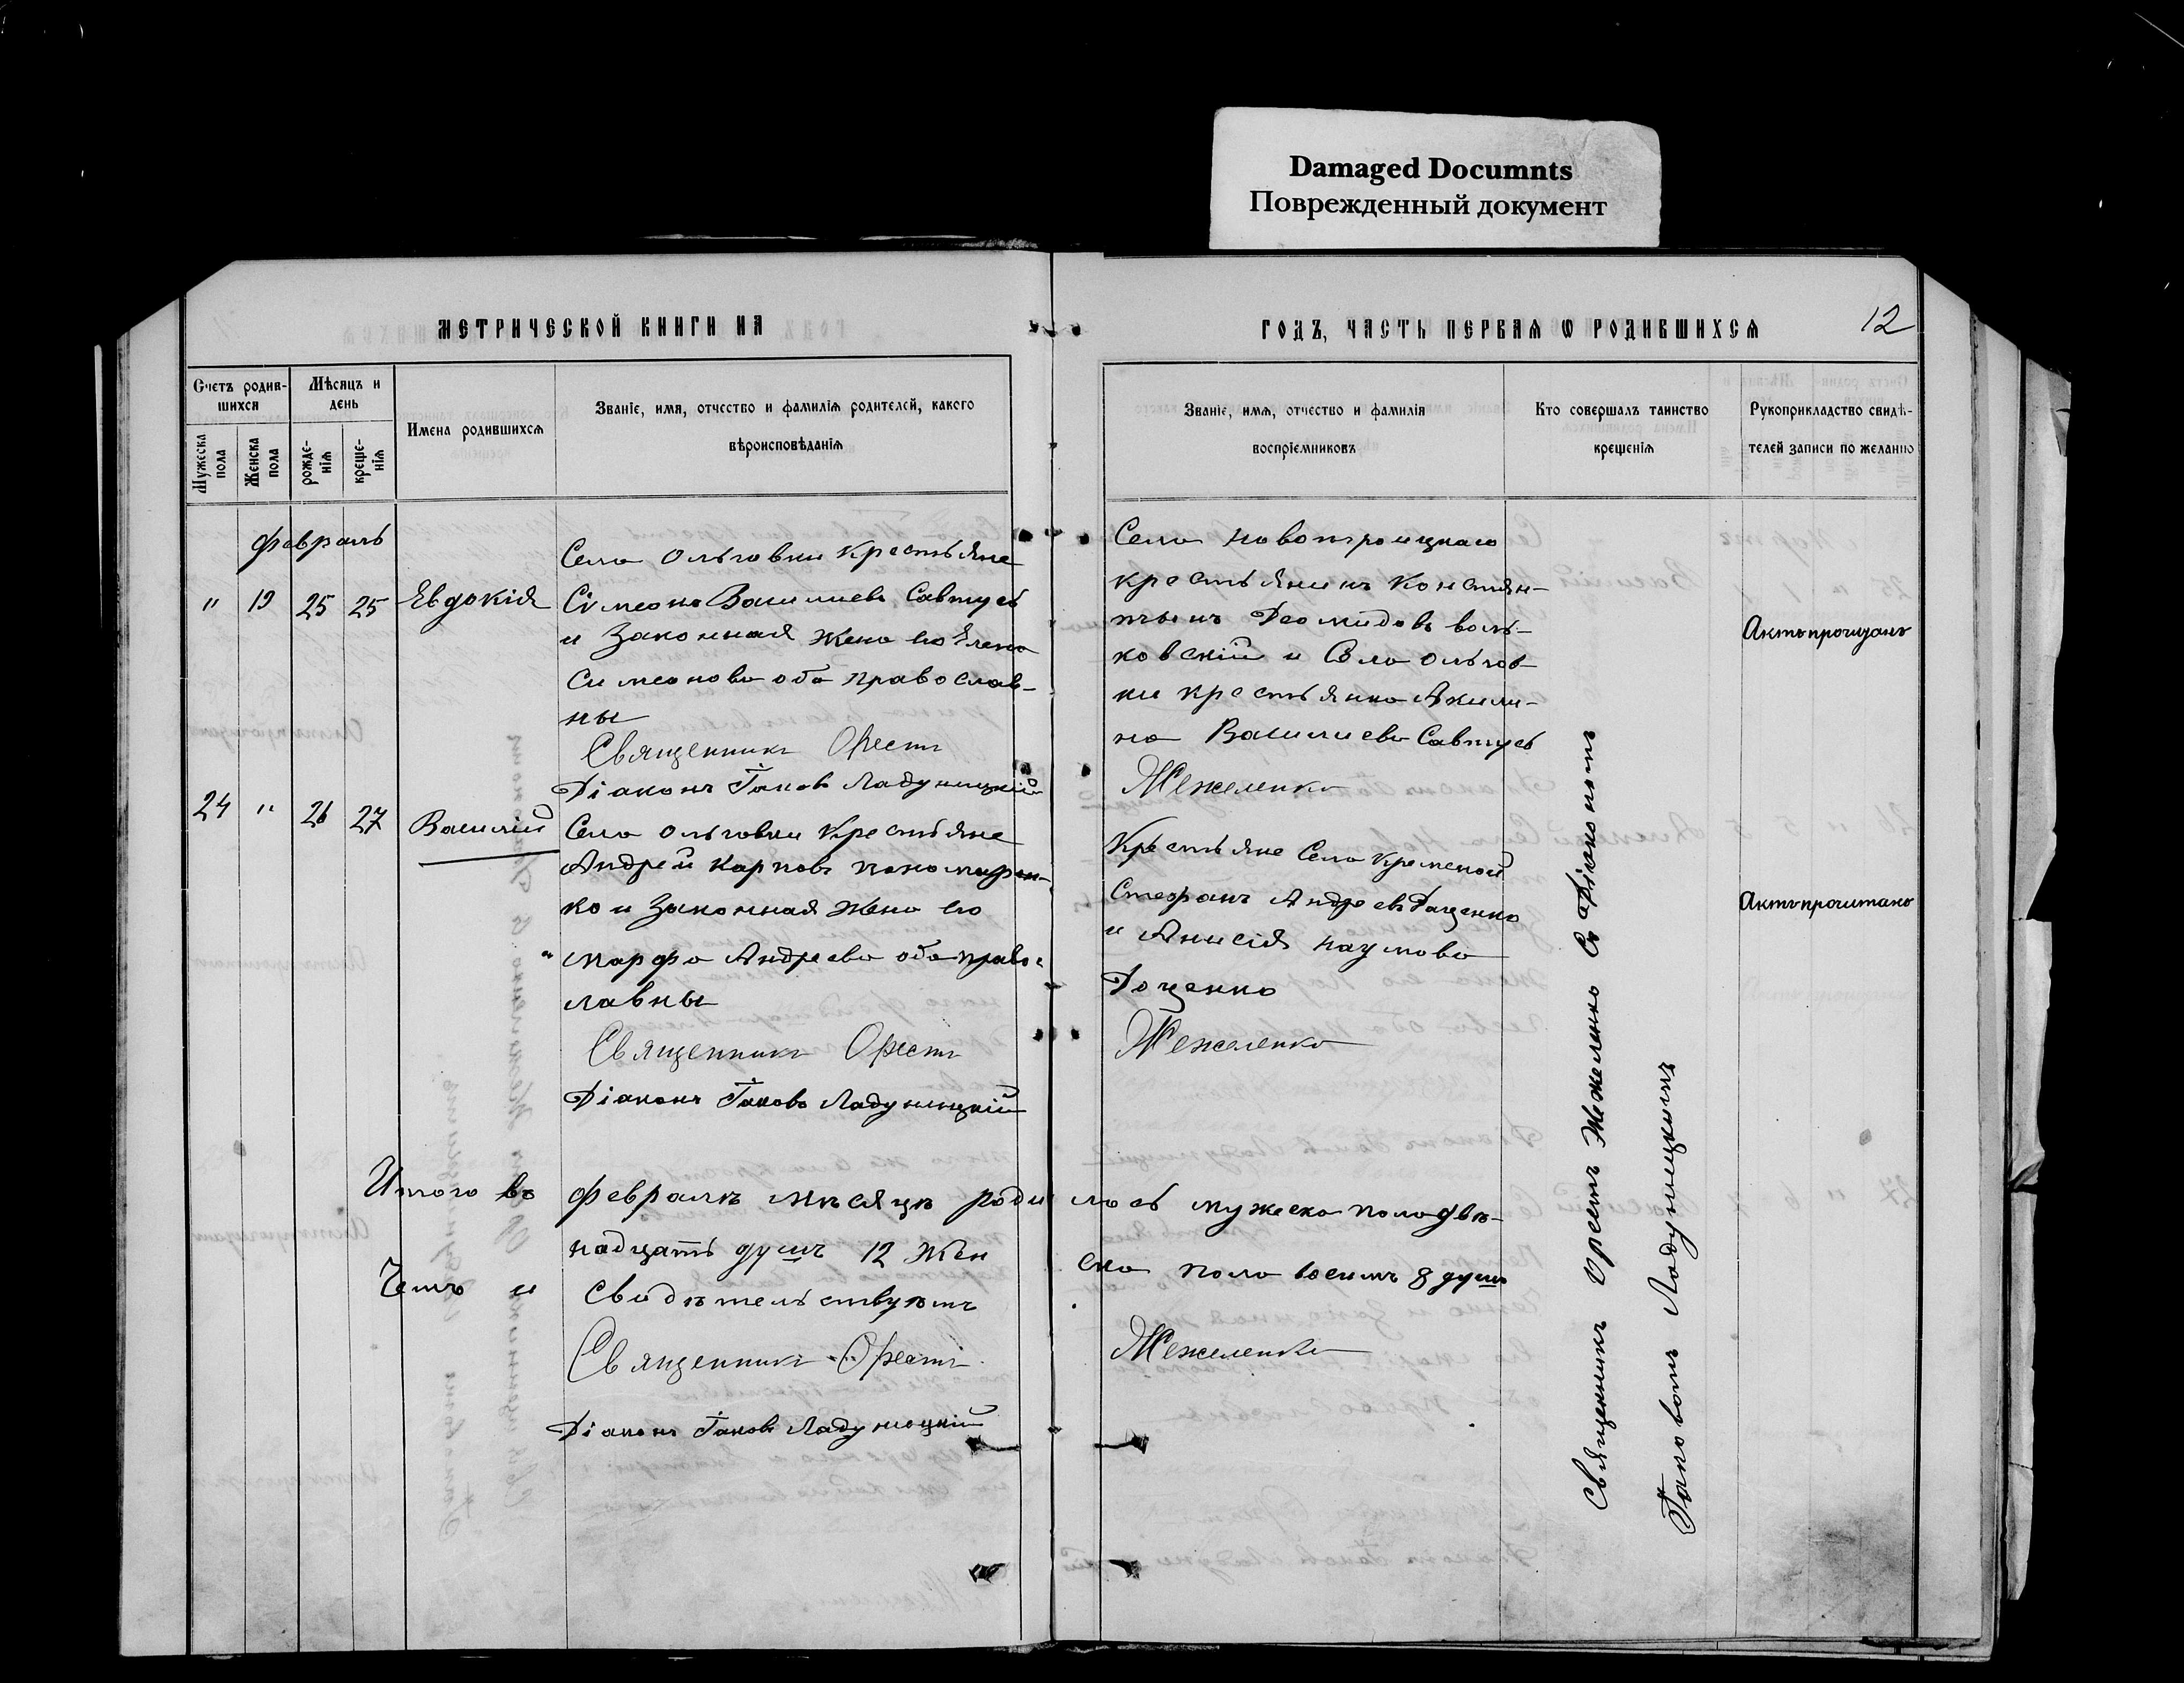 Damaged Documnts
Поврежденный документ
МЕТРИЧЕСКОЙ КНИГИ НА
ГОДЪ, ЧАСТЬ ПЕРВАЯ Ѡ РОДИВШИХСЯ
12
Счетъ родив-
шихся
Мѣсяцъ и
день
Мужеска
пола
Женска
пола
рожде-
нія
креще-
нія
Имена родившихся
Званіе, имя, отчество и фамилія родителей, какого
вѣроисповѣданія
Званіе, имя, отчество и фамилія
воспріемниковъ
Кто совершалъ таинство
крещенія
Рукоприкладство свидѣ-
телей записи по желанію
Февраль
" 19 25 25 Евдокія
Села Ольговки Крестьяне
Сімеонъ Василиевъ Савтусь
и Законная жена его Елена
Симеонова оба православ-
ны
Священникъ Орестъ
Діаконъ Іаковъ Ладуницкій
Села Новотроицкаго
крестьянинъ Констян-
тынъ Деомидовъ воль-
ковскій и Села Ольгов-
ки крестьянка Акили-
на Василиева Савтусь
Жежеленко
Актъ прочитанъ
24 " 26 27 Василій
Села Ольговки Крестьяне
Андрей Карповъ пономарен-
ко и Законная жена его
Марфа Андреева оба правос
лавны
Священникъ Орестъ
Діаконъ Іаковъ Ладуницкій
Крестьяне Села Кременой
Стефанъ Андреевъ Даценко
и Анисія Наумова
Доценко
Жежеленко
Актъ прочитанъ
Итого въ февралѣ мѣсяцѣ родилось мужеска пола двѣ-
надцать душъ 12 Женска пола восимъ 8 душъ
Чемъ и Свидѣтельствуемъ
Священникъ Орестъ Жежеленко
Діаконъ Іаковъ Ладуницкій
Священникъ Орестъ Жежеленко Съ Діакономъ
Іаковомъ Ладуницкимъ